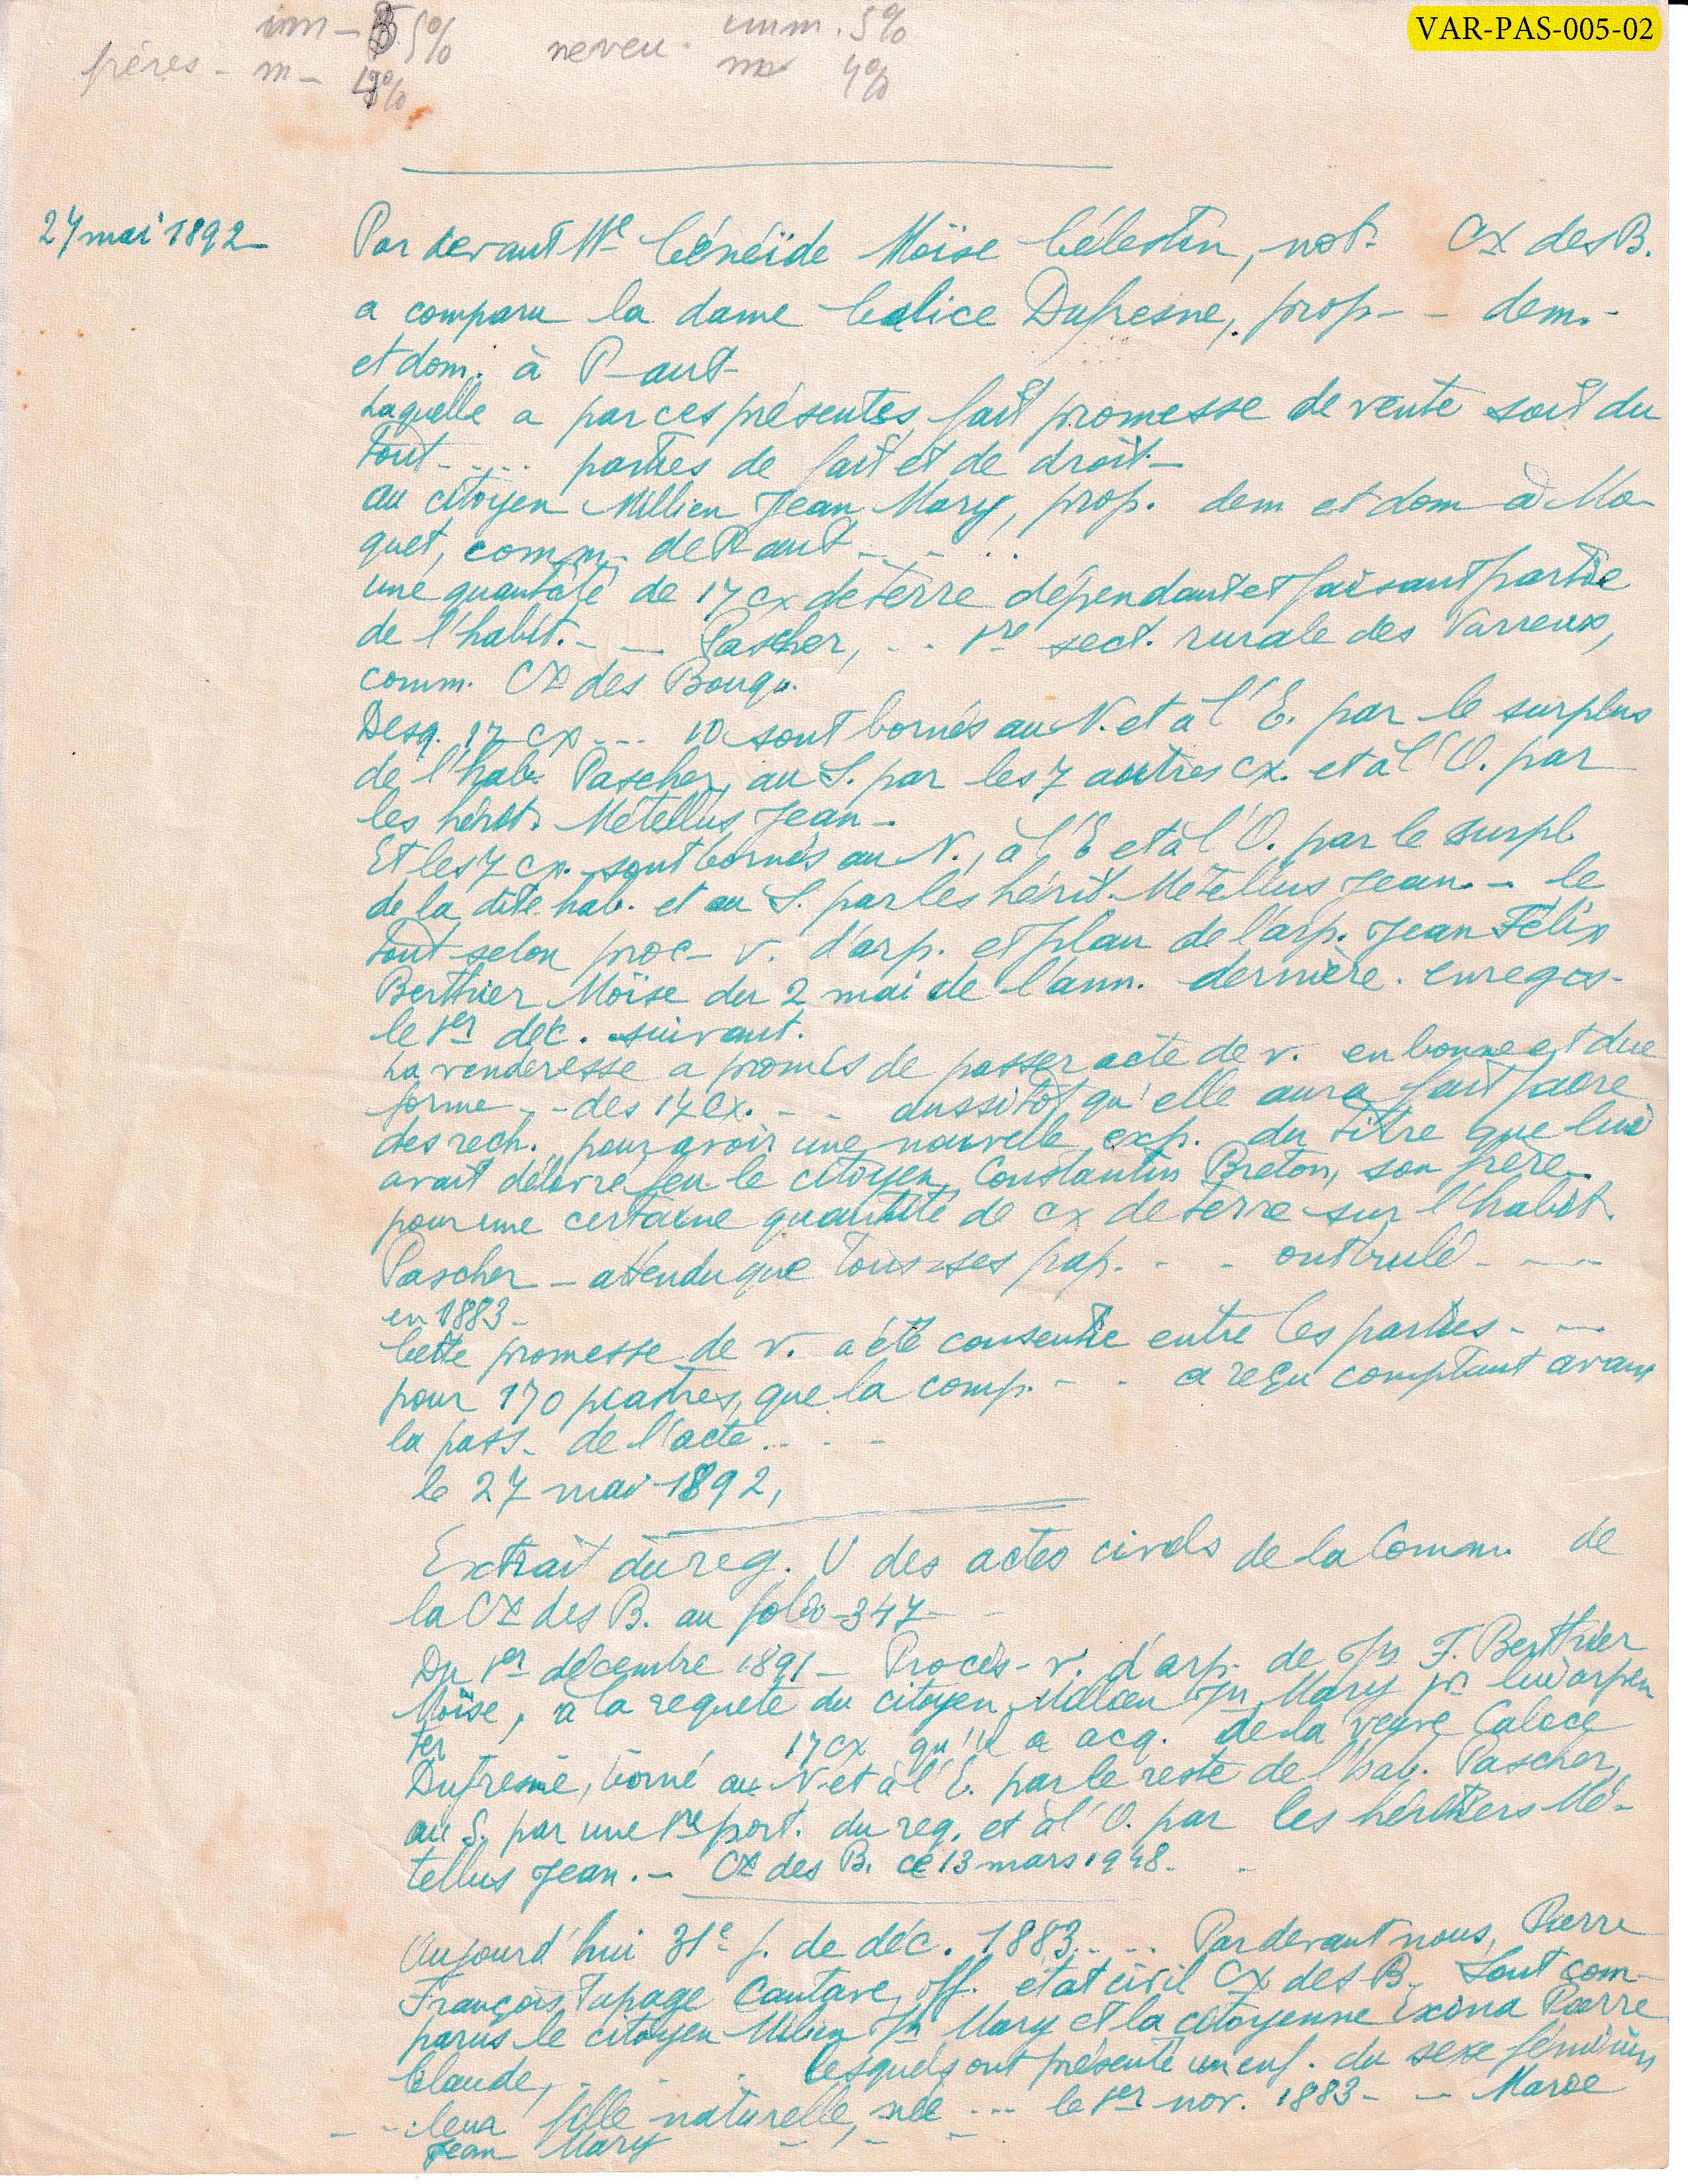 VAR-PAS-005-02
imm - 5%
frères - m -
neveu imm. 5%
m 4%
27 mai 1892
Par devant Me Cénéïde Moïse Célestin, not. CX des B.
a comparu la dame Calice Dufresne, prop - - dem. -
et dom. à P-au-P
Laquelle a par ces présentes, fait promesse de vente soit du
tout - . . . . parties de fait et de droit -
au citoyen Millien Jean Mary, prop. dem et dom à Ma-
quet, comm. de P au P - - . .
une quantité de 17 cx de terre dépendant et faisant partie
de l'habit. - - Pascher, . . 1re sect. rurale des Varreux,
comm. CX des Bouqu.
Desq. 17 cx - - - 10 sont bornés au N. et à l'E. par le surplus
de l'hab. Pascher, au S. par les 7 autres cx. et à l'O. par
les hérit. Métellus Jean -
Et les 7 cx. sont bornés au N., à l'E et à l'O. par le surpl
de la dite hab. et au S. par les hérit. Métellus Jean. - le
tout selon proc - v. d'arp. et plan de l'arp. Jean Félix
Berthier Moïse du 2 mai de l'ann. dernière. enregis-
le 1er déc. suivant.
La venderesse a promis de passer acte de v. en bonne et due
forme, - des 17 cx. - - aussitôt qu'elle aura fait faire
des rech. pour avoir une nouvelle exp. du titre que lui
avait délivré feu le citoyen Constantin Breton, son père
pour une certaine quantité de cx de terre sur l'habit.
Pascher - attendu que tous ses pap. - - ont brulé - - -
en 1883 -
Cette promesse de v. a été consentie entre les parties - -
pour 170 piastres, que la comp. - - a reçu comptant avant
la pass. de l'acte . . - -
le 27 mai 1892,
Extrait du reg. V des actes civils de la Comm. de
la CX des B. au folio 347 -
Du 1er décembre 1891 - Procès - v. d'arp. de Jn F. Berthier
Moïse, à la requête du citoyen Milien Jn Mary pr lui arpen
ter 17 cx qu'il a acq. de la veuve Calice
Dufresne, borné au N. et à l'E. par le reste de l'hab. Pascher,
au S. par une 1re port. du req. et à l'O. par les héritiers Mé-
tellus Jean. - CX des B. ce 13 mars 1948 -
Aujourd'hui 31e j. de déc. 1883 . . . Par devant nous, Pierre
François Tapage Cantave, off. état civil CX des B., Sont com-
parus le citoyen Milien Jn Mary et la citoyenne Exona Pierre
Claude, - - . lesquels ont présenté un enf. du sexe féminin
- - leur fille naturelle, née - - - le 1er nov. 1883 - - Marie
Jean Mary - - -